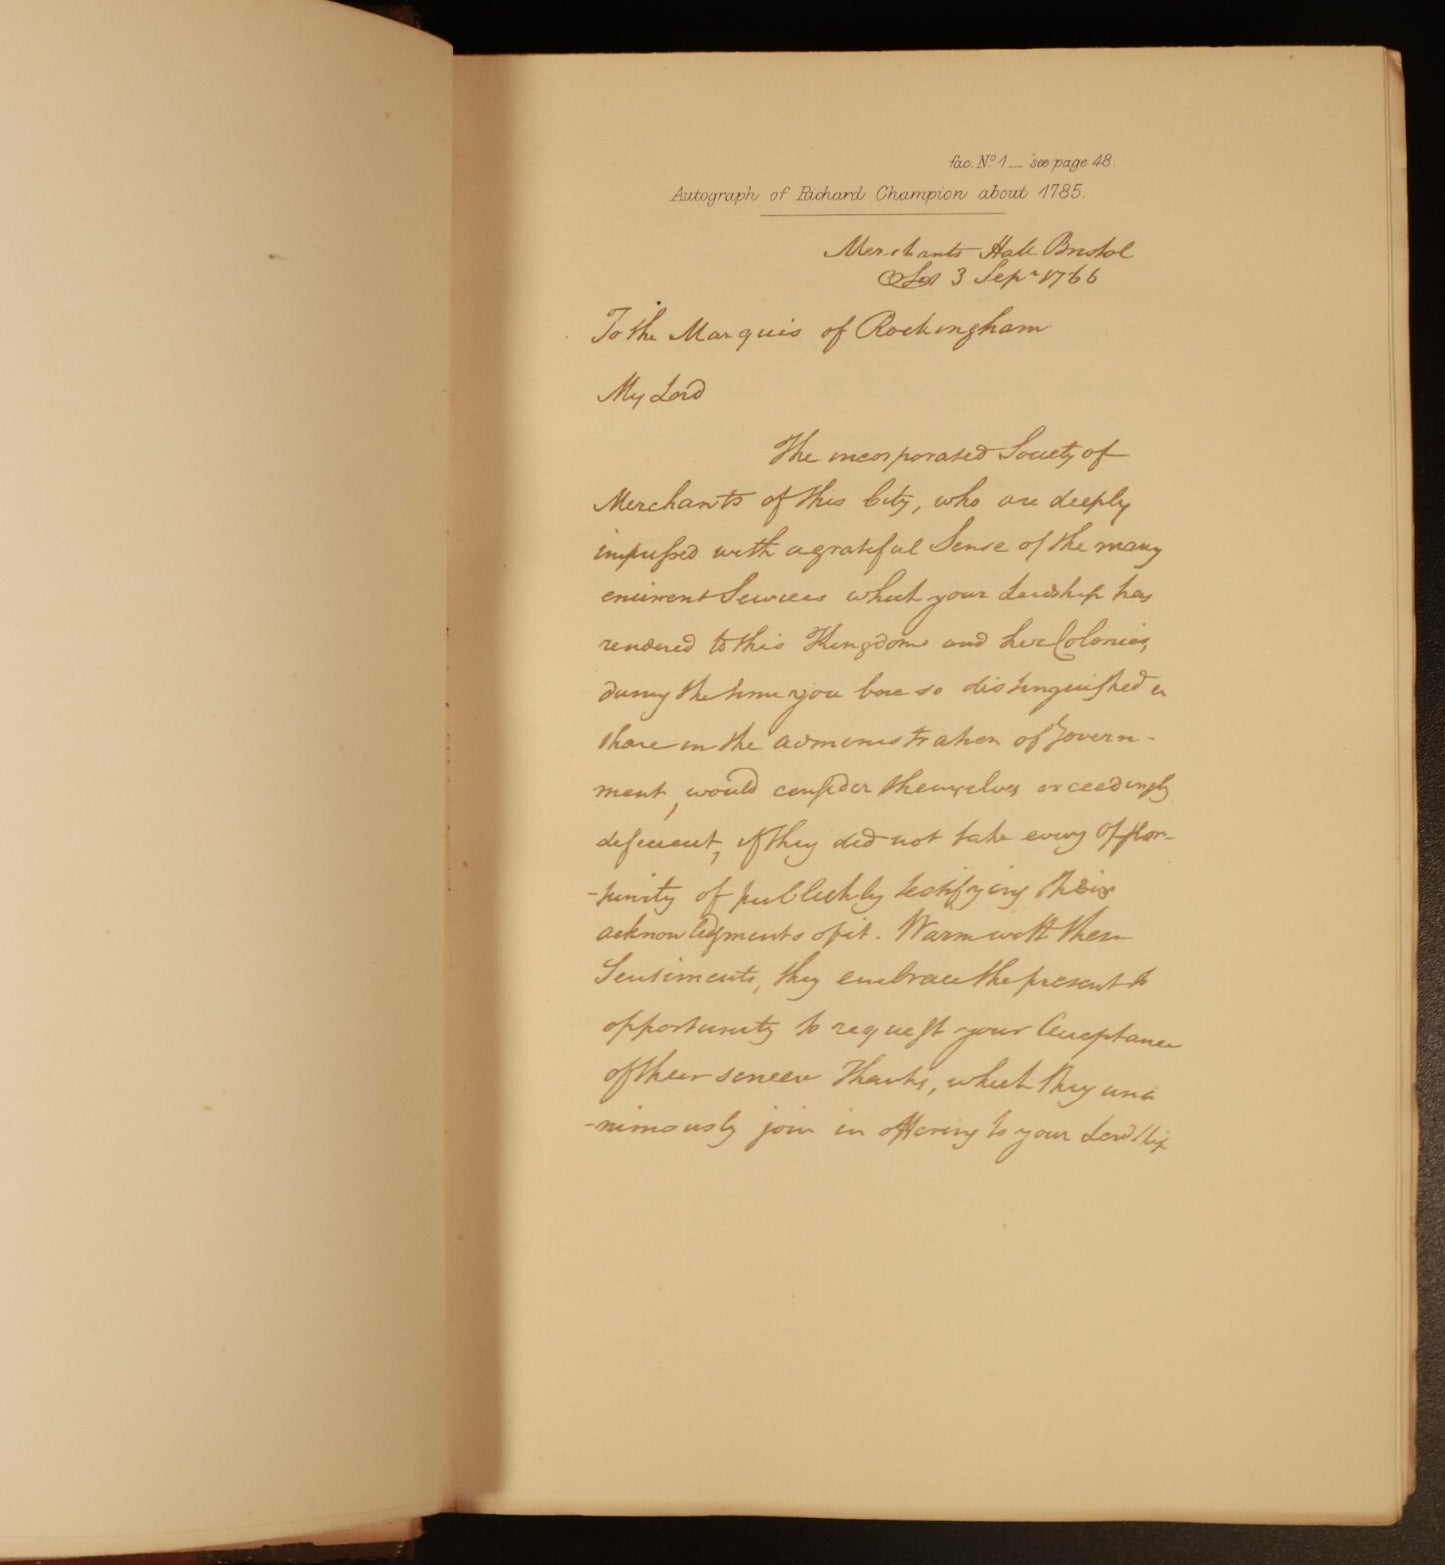 fac. Nº 1 — see page 48.
Autograph of Richard Champion about 1785.
Merchants Hall Bristol
3 Sepr 1766
To the Marquis of Rockingham
My Lord
The incorporated Society of
Merchants of this City, who are deeply
impressed with a grateful Sense of the many
eminent Services which your Lordship has
rendered to this Kingdom and her Colonies,
during the time you bore so distinguished a
share in the administration of Govern-
ment, would consider themselves exceedingly
deficient, if they did not take every oppor-
-tunity of publickly testifying their
acknowledgments of it. Warm with these
Sentiments, they embrace the present
opportunity to request your Acceptance
of their sincere Thanks, which they una
-nimously join in offering to your Lordship